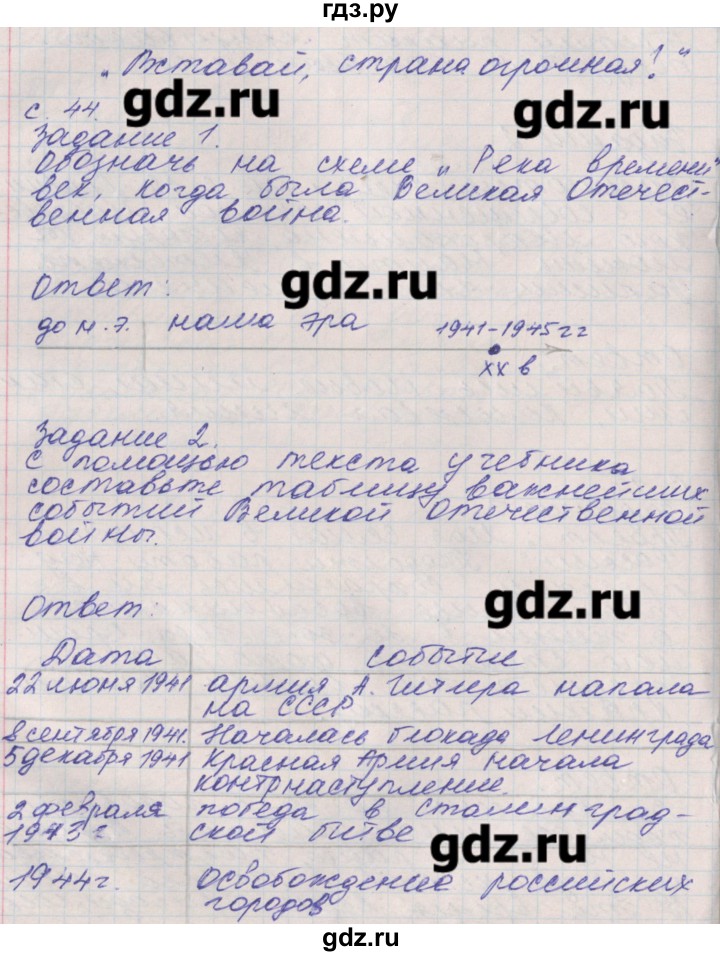 гдз.ру
„Вставай, страна огромная!"
с. 44.
gdz.ru
gdz.ru
Задание 1.
Обозначь на схеме „Река времени"
век, когда была Великая Отечест-
венная война.
gdz.ru
Ответ:
до н.э. наша эра 1941-1945гг
XX в
Задание 2.
С помощью текста учебника
составьте таблицу важнейших
событий Великой Отечественной
войны.
gdz.ru
Ответ:
Дата событие
22 июня 1941 армия А. Гитлера напала
на СССР
8 сентября 1941. Началась блокада Ленинграда
5 декабря 1941 Красная Армия начала
контрнаступление.
2 февраля победа в сталинград-
1943 г ской битве
gdz.ru
1944г. освобождение российских
городов
gdz.ru